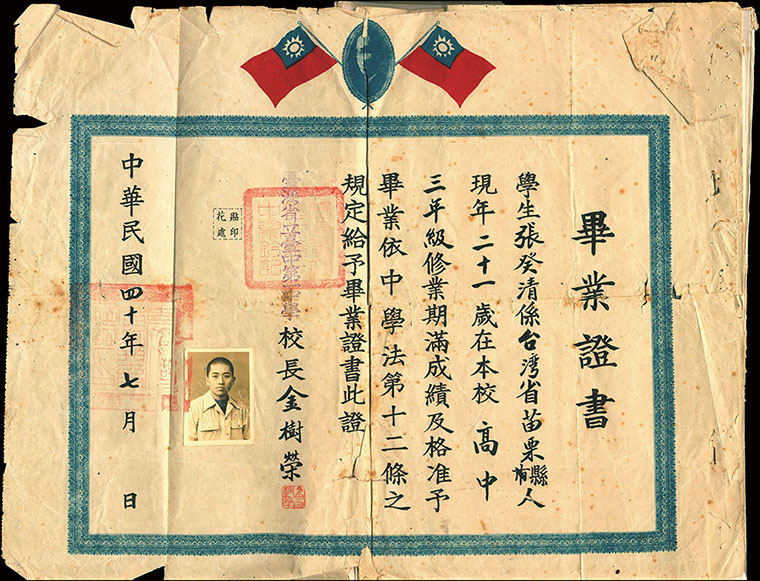 畢業證書
學生張癸清係台灣省苗栗縣人
現年二十一歲在本校高中
三年級修業期滿成績及格准予
畢業依中學法第十二條之
規定給予畢業證書此證
校長金樹榮
貼印
花處
中華民國四十年七月 日